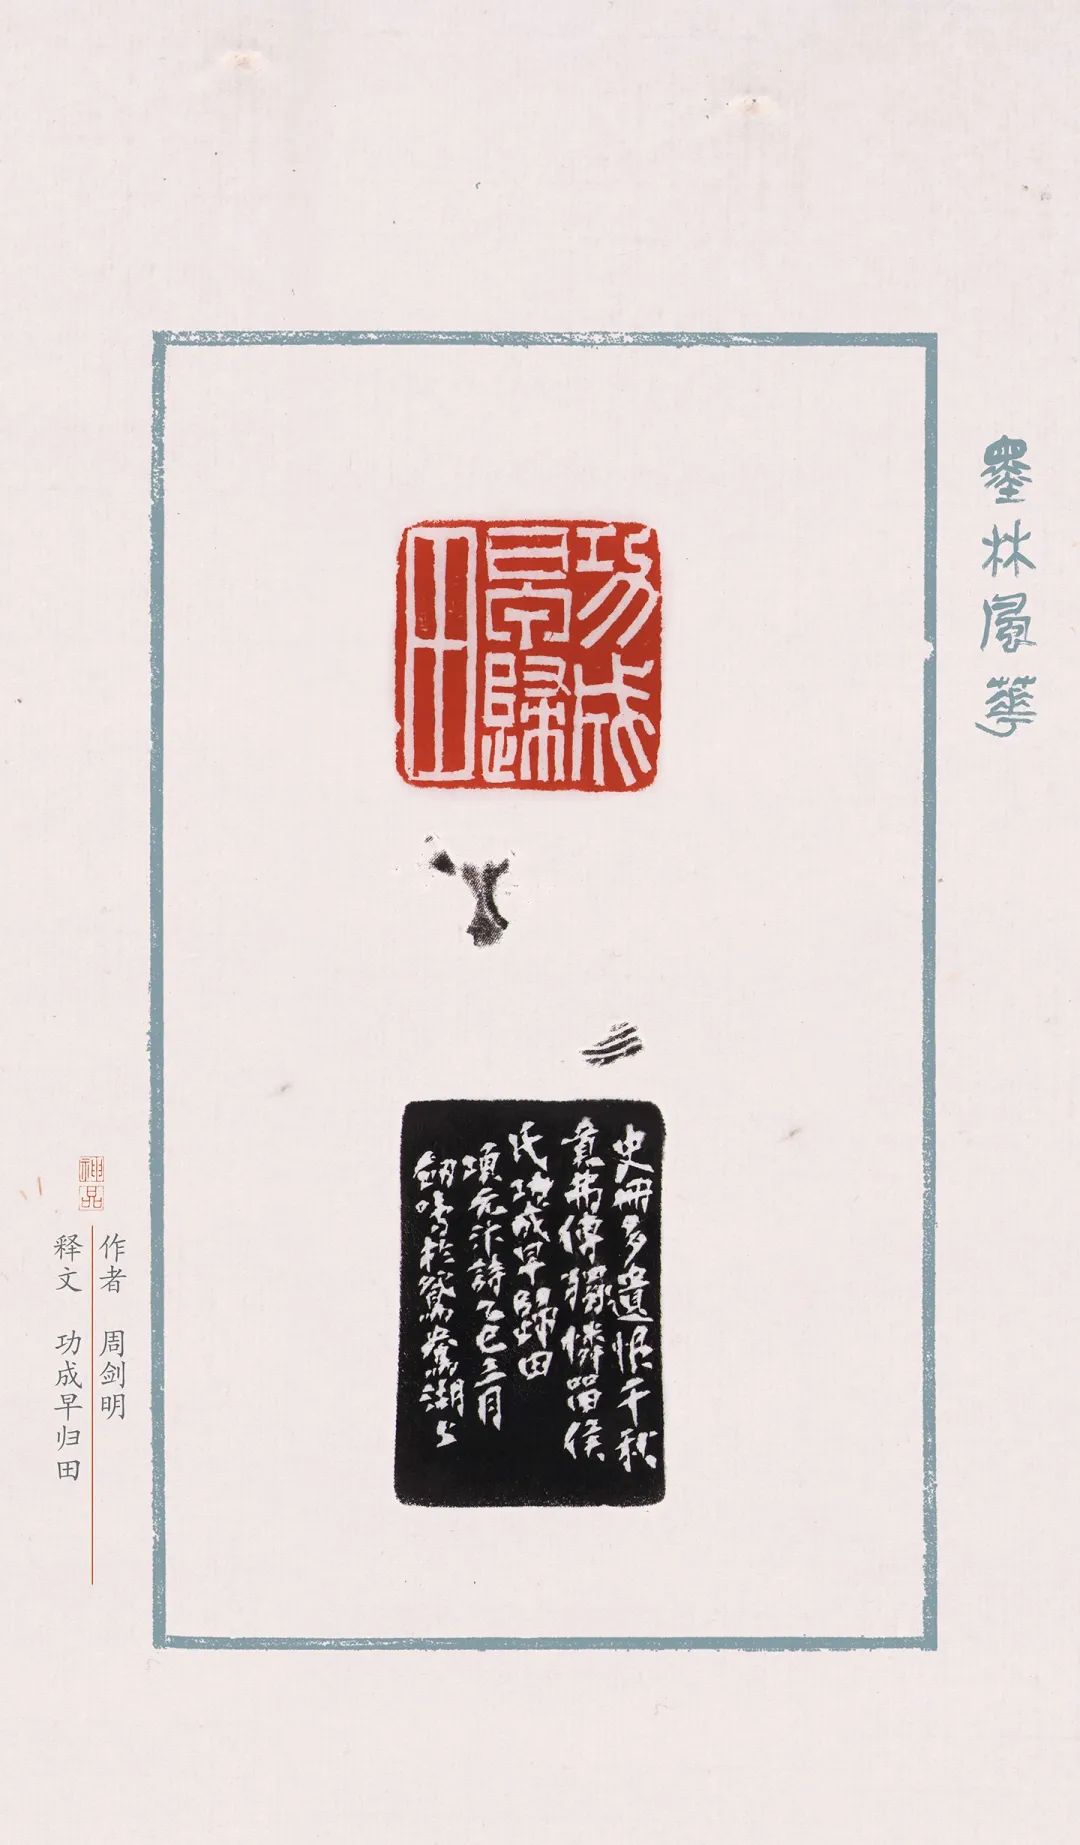 墨林風華
功成
早歸
田
史冊多遺恨千秋
貴弗傳獨憐留侯
氏功成早歸田
項元汴詩乙巳三月
劒鳴於鴛鴦湖上
神品
作者 周剑明
释文 功成早归田